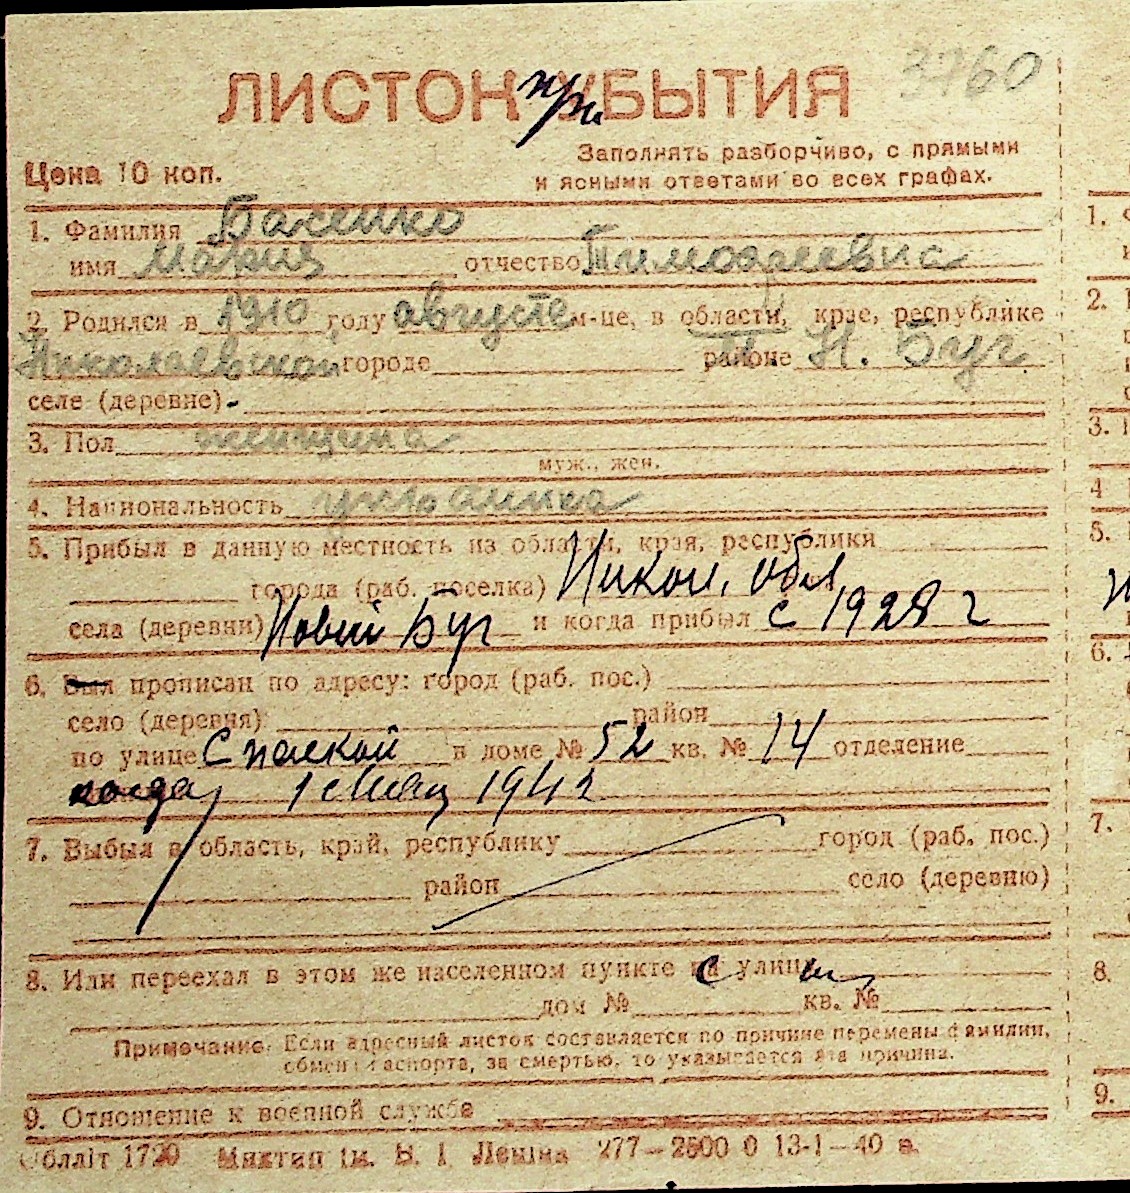 3760
ЛИСТОК при УБЫТИЯ
Цена 10 коп.
Заполнять разборчиво, с прямыми
и ясными ответами во всех графах.
1. Фамилия Басенко
имя Мария отчество Тимофеевис
2. Родился в 1910 году августе м-це, в области, крае, республике
Николаевской городе районе Н. Буг
селе (деревне) -
3. Пол женщина
муж., жен.
4. Национальность украинка
5. Прибыл в данную местность из области, края, республики
города (раб. поселка) Никол. обл
села (деревни) Новый Буг и когда прибыл с 1928 г
6. Был прописан по адресу: город (раб. пос.)
село (деревня) район
по улице Спаской в доме № 52 кв. № 14 отделение
когда 1 Мая 1942
7. Выбыл в область, край, республику город (раб. пос.)
район село (деревню)
8. Или переехал в этом же населенном пункте с улицы
дом № кв. №
Примечание. Если адресный листок составляется по причине перемены фамилии,
обмена паспорта, за смертью, то указывается эта причина.
9. Отношение к военной службе
Облліт 1720 Миктип ім. В. І. Леніна 277—2500 0 13-1—40 г.
1.
2.
3.
4
5.
6.
7.
8.
9.